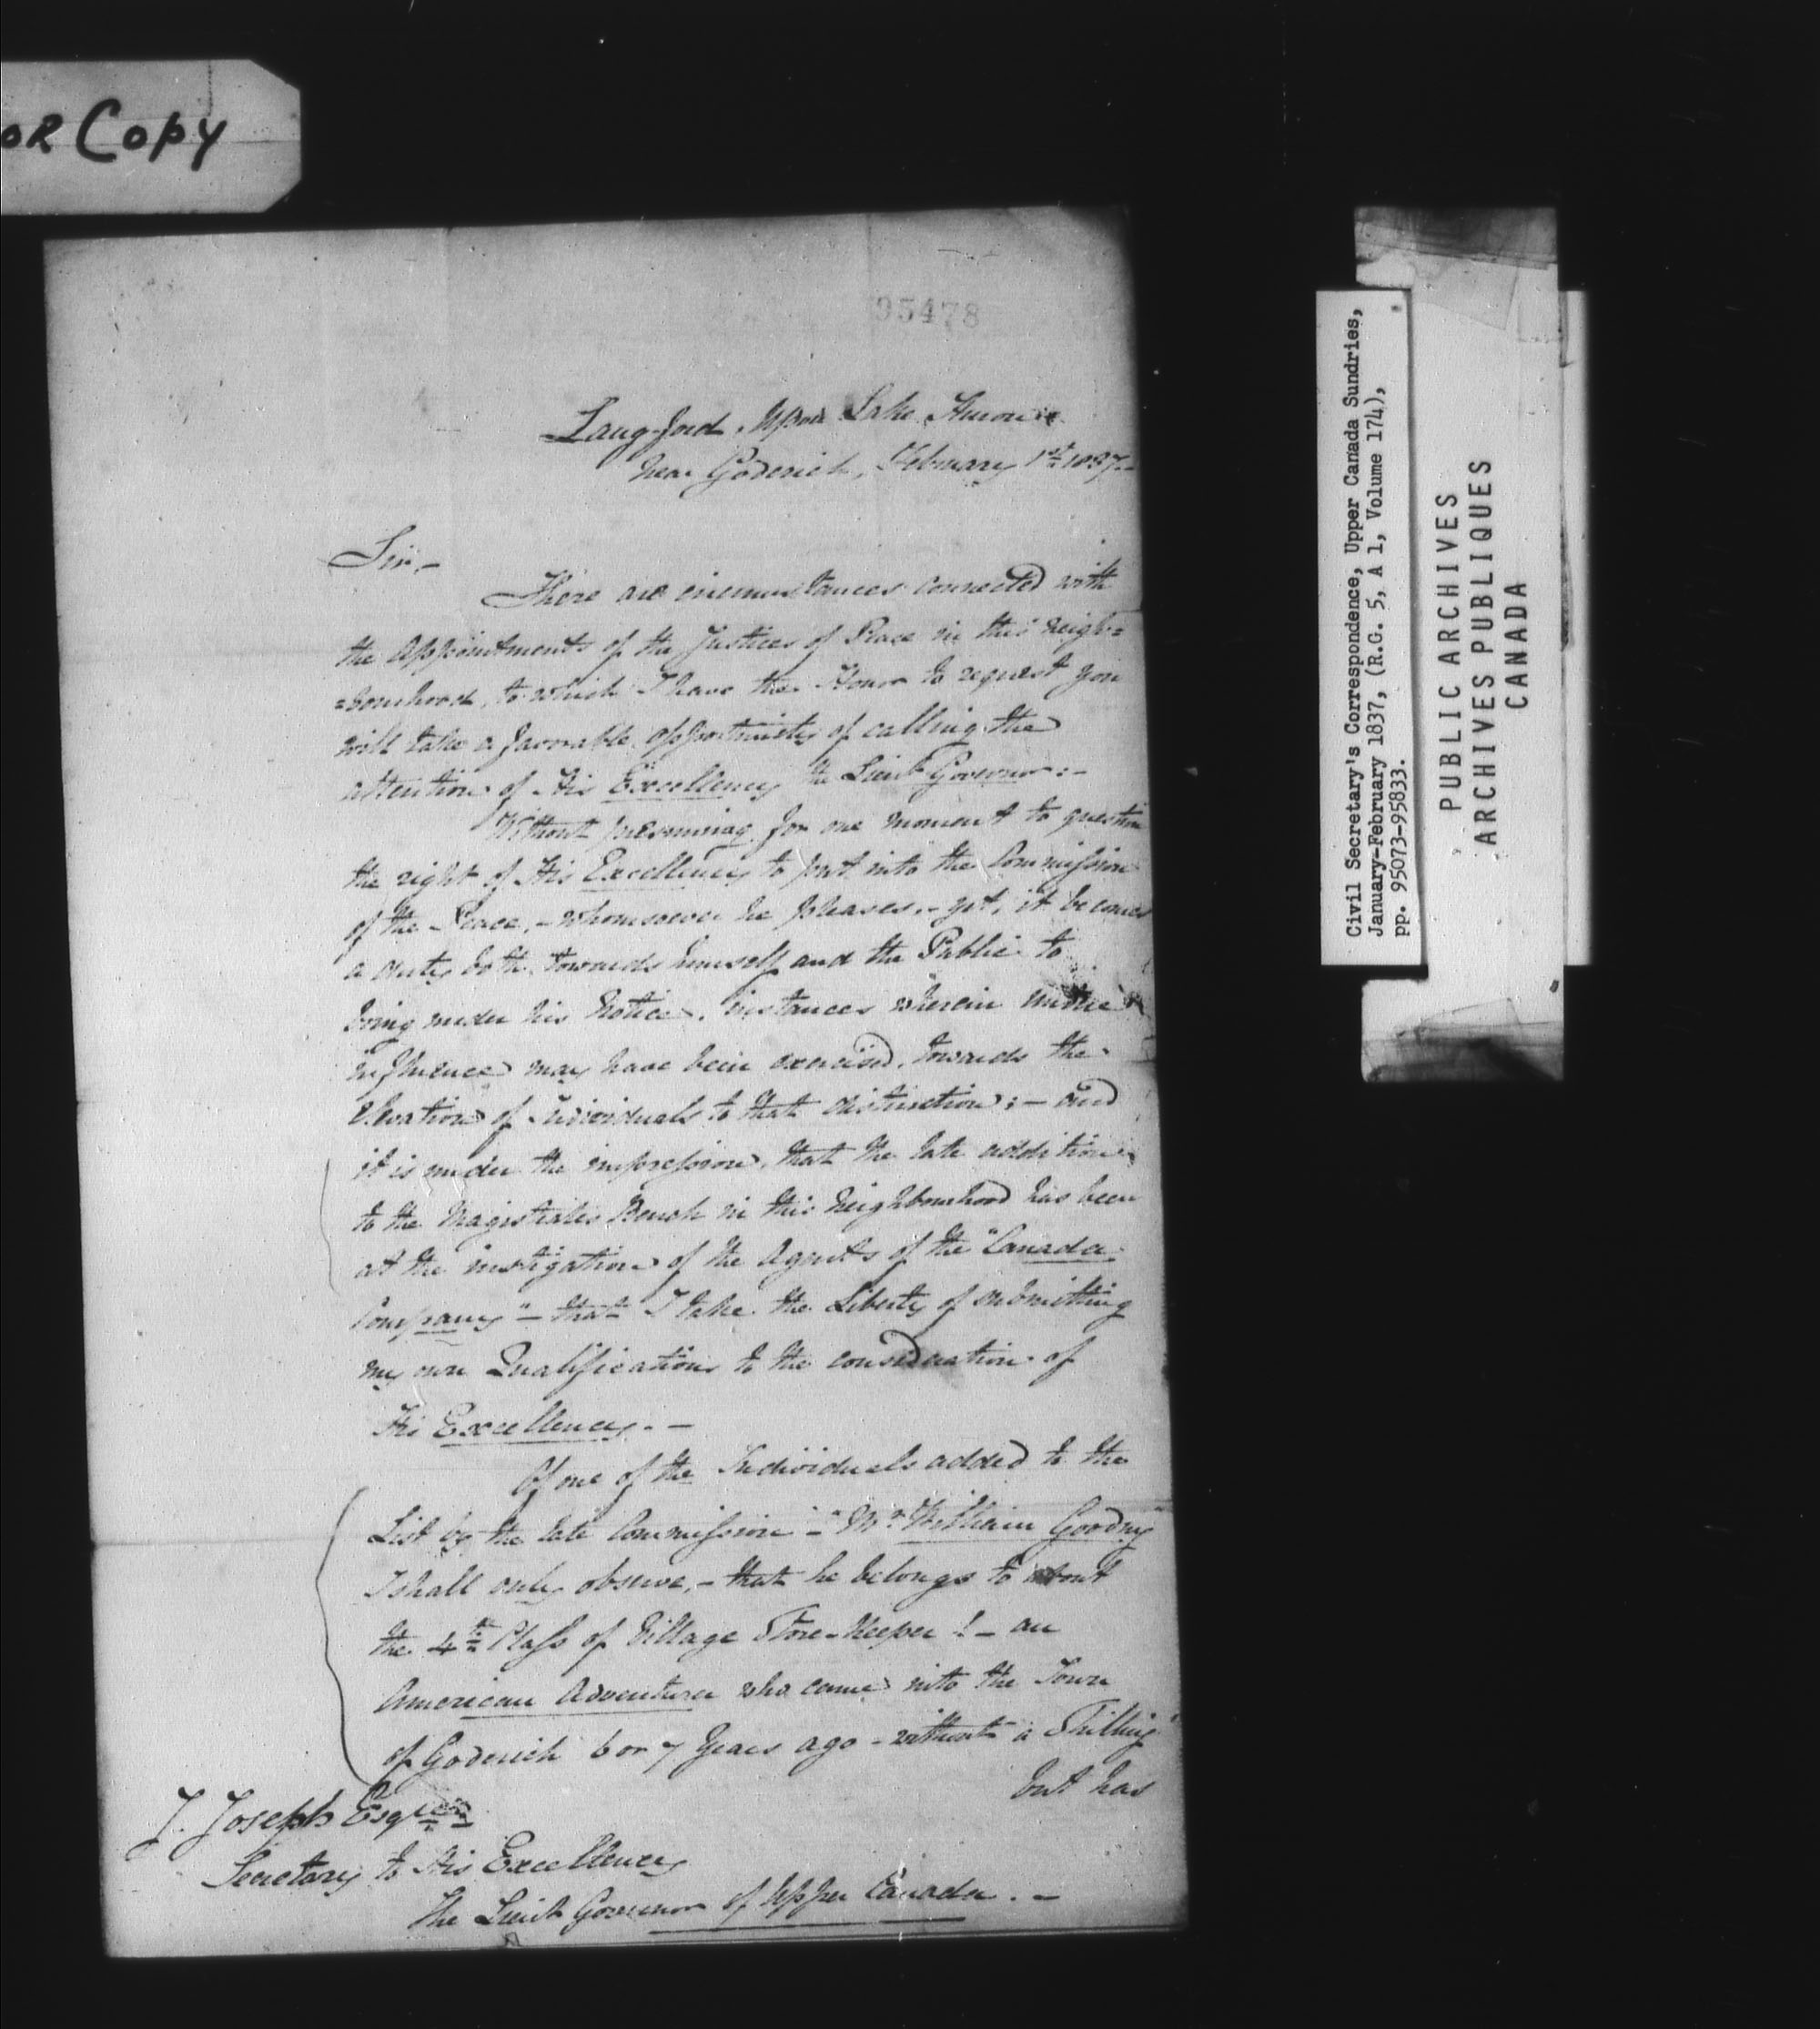 OR Copy
95478
Lang-ford, Upon Lake Huron
near Goderich, February 1st 1837-
Sir,-
There are circumstances connected with
the Appointments of the Justices of Peace in this neigh=
=bourhood, to which I have the Honor to request you
will take a favorable opportunity of calling the
attention of His Excellency the Lieut Governor:-
Without presuming for one moment to question
the right of His Excellency to put into the Commission
of the Peace,- whomsoever he pleases,- yet, it becomes
a duty both towards himself and the Public to
bring under his notice, instances wherein undue
influence may have been exercised, towards the
elevation of Individuals to that distinction;- and
it is under the impression, that the late addition
to the Magistrates Bench in this neighbourhood has been
at the instigation of the Agents of the "Canada
Company"- that I take the Liberty of submitting
my own Qualifications to the consideration of
His Excellency.-
Of one of the Individuals added to the
List by the late Commission -"Mr. William Gooding"
I shall only observe,- that he belongs to about
the 4th Class of Village Store-Keeper!- an
American Adventurer who came into the Town
of Goderich 6 or 7 Years ago - without a Shilling"
but has
J. Joseph Esqre
Secretary to His Excellency
The Lieut Governor of Upper Canada.-
Civil Secretary's Correspondence, Upper Canada Sundries,
January-February 1837, (R.G. 5, A 1, Volume 174),
pp. 95073-95833.
PUBLIC ARCHIVES
ARCHIVES PUBLIQUES
CANADA